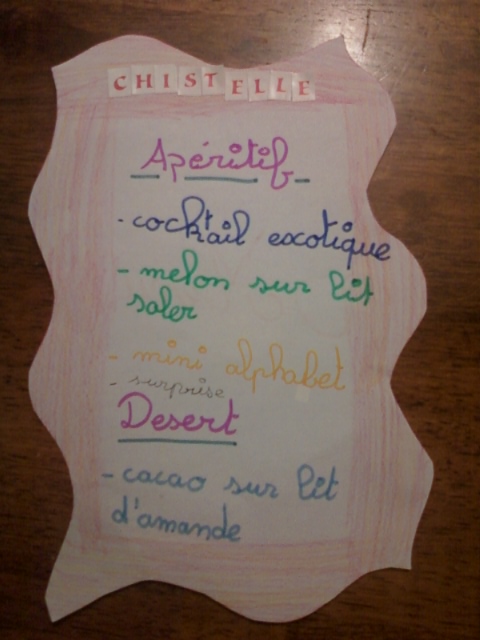 CHISTELLE
Apéritif
- cocktail exotique
- melon sur lit
saler
- mini alphabet
- surprise
Desert
- cacao sur lit
d'amande